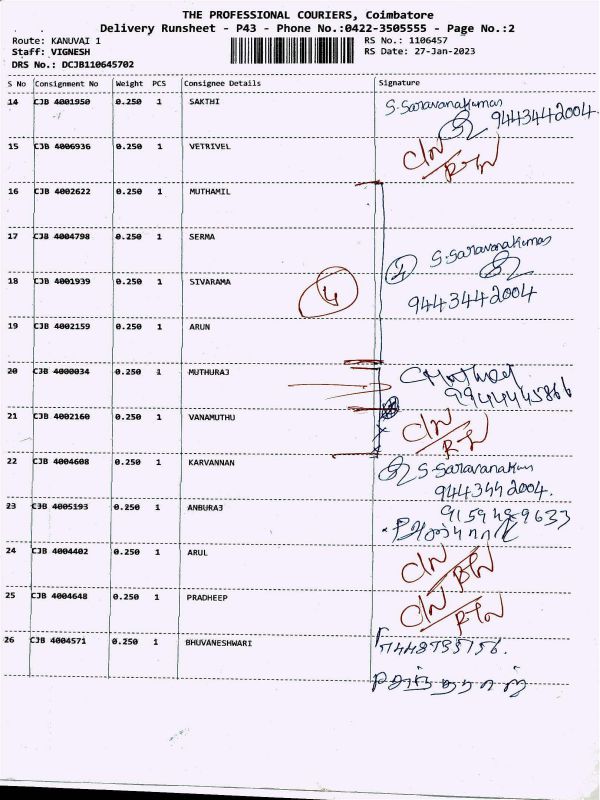 THE PROFESSIONAL COURIERS, Coimbatore
Delivery Runsheet - P43 - Phone No.:0422-3505555 - Page No.:2
Route: KANUVAI 1 RS No.: 1106457
Staff: VIGNESH RS Date: 27-Jan-2023
DRS No.: DCJB110645702
S No Consignment No Weight PCS Consignee Details Signature
14 CJB 4001950 0.250 1 SAKTHI S.Saravanakumar
9443442004
15 CJB 4006936 0.250 1 VETRIVEL C/N
RTN
16 CJB 4002622 0.250 1 MUTHAMIL
17 CJB 4004798 0.250 1 SERMA S.Saravanakumar
18 CJB 4001939 0.250 1 SIVARAMA 4 4 9443442004
19 CJB 4002159 0.250 1 ARUN
20 CJB 4000034 0.250 1 MUTHURAJ
21 CJB 4002160 0.250 1 VANAMUTHU C/N
22 CJB 4004608 0.250 1 KARVANNAN S.Saravanakum
9443442004.
23 CJB 4005193 0.250 1 ANBURAJ
24 CJB 4004402 0.250 1 ARUL C/N
RTN
25 CJB 4004648 0.250 1 PRADHEEP C/N
RTN
26 CJB 4004571 0.250 1 BHUVANESHWARI